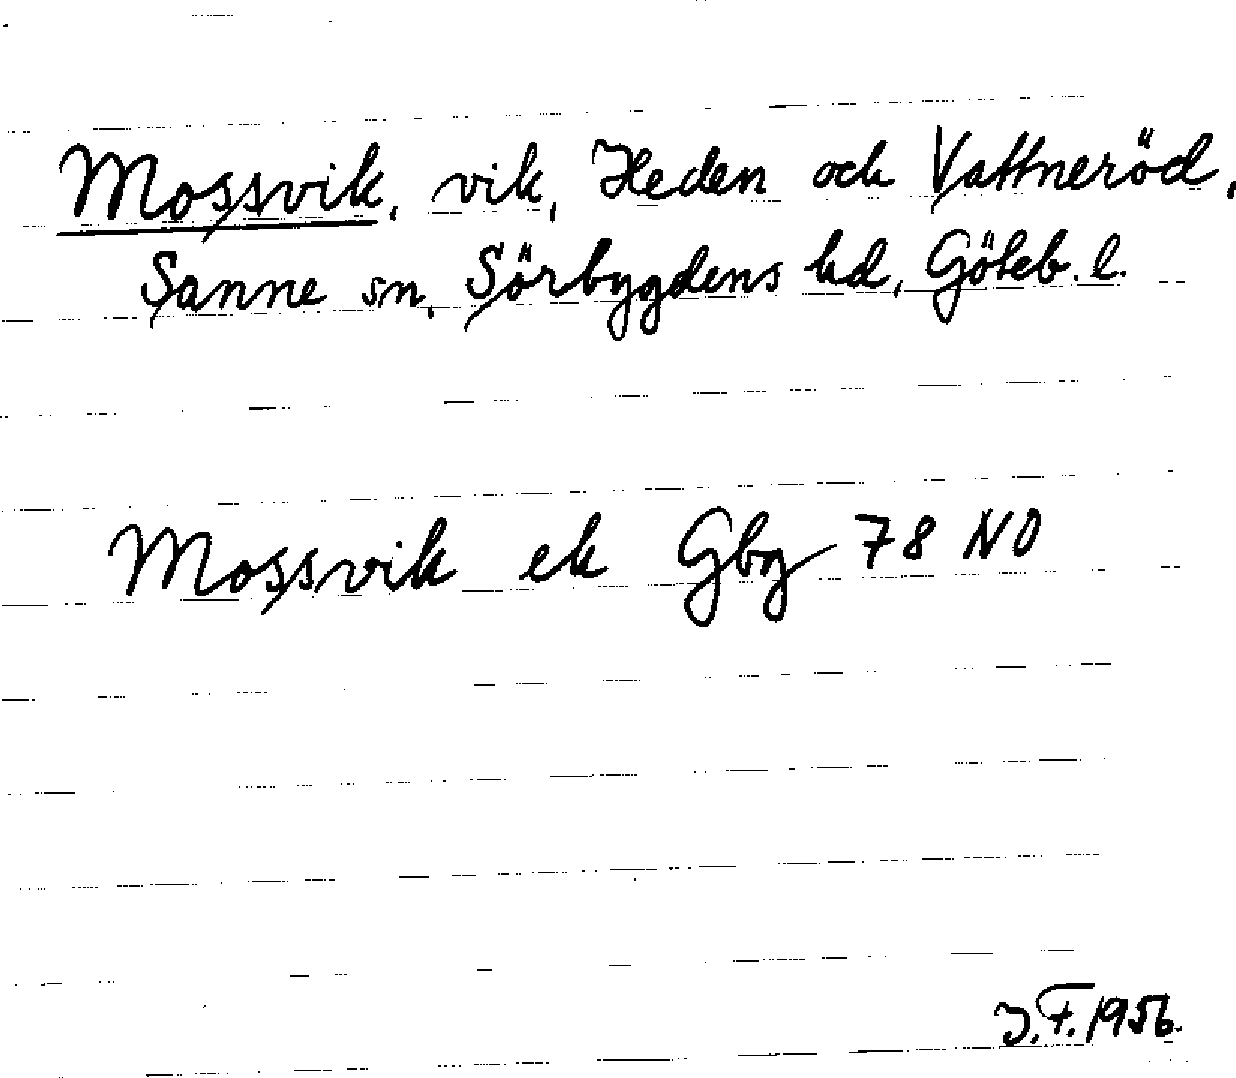 Mossvik, vik, Heden och Vattneröd,
Sanne sn, Sörbygdens hd, Göteb. l.
Mossvik ek Gbg 78 NO
J.F. 1956.